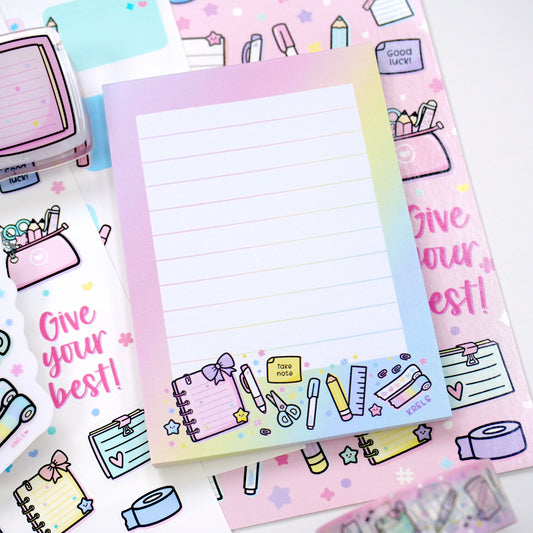 Good
luck!
Good
luck!
Give
your
best!
Give
our
best!
Take
note
KAELS